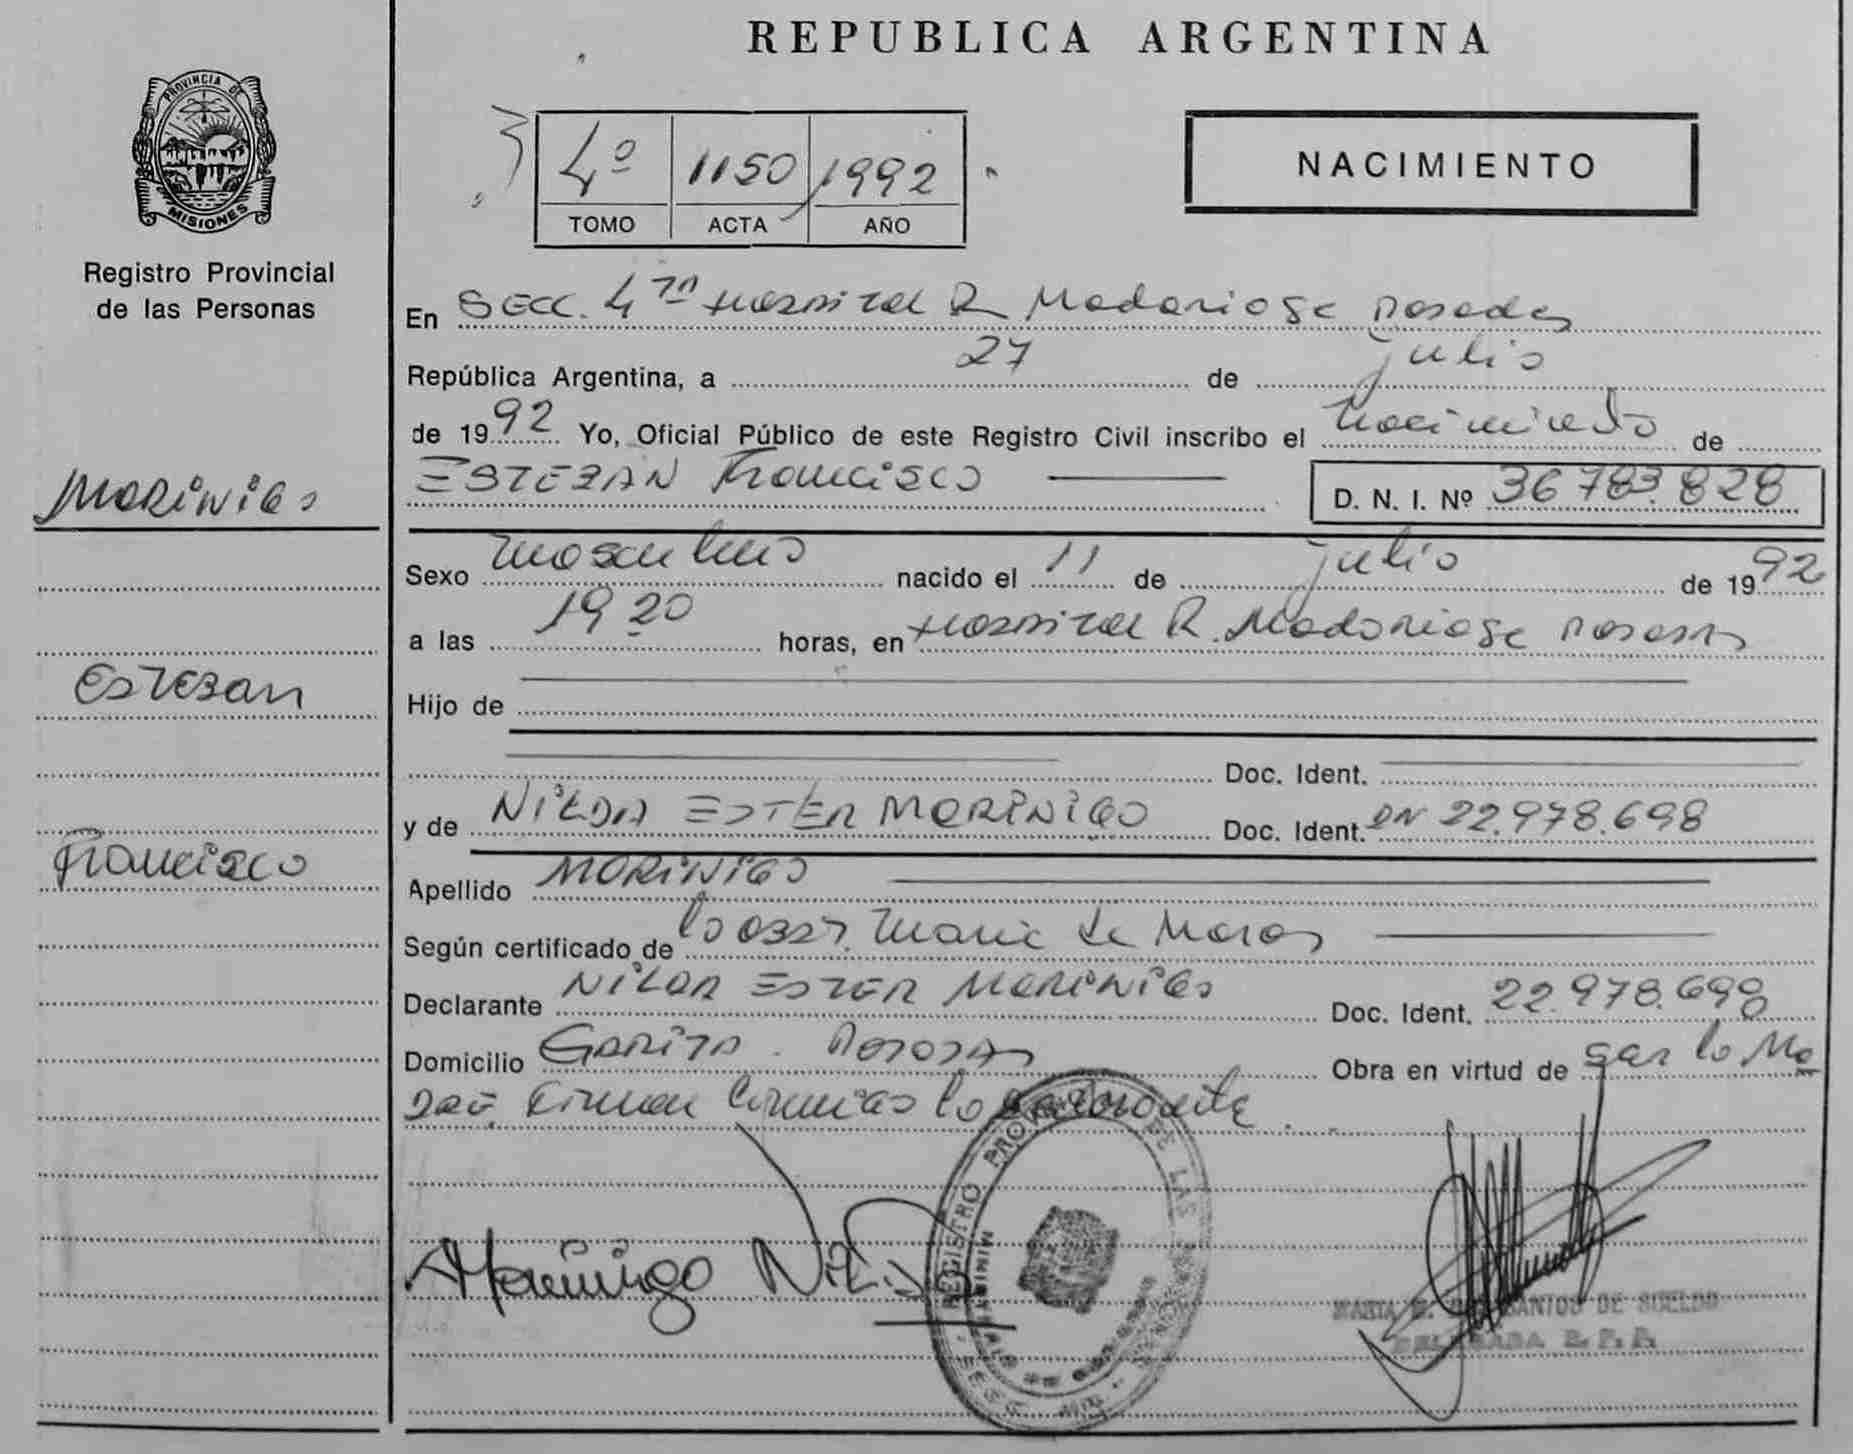 REPUBLICA ARGENTINA
PROVINCIA DE
MISIONES
Registro Provincial
de las Personas
4º 1150 1992
TOMO ACTA AÑO
NACIMIENTO
En SECC. 4ta Hospital R Madariaga Posadas
República Argentina, a 27 de julio
de 1992 Yo, Oficial Público de este Registro Civil inscribo el nacimiento de
ESTEBAN Francisco D. N. I. Nº 36783.828
MORINIGO
Sexo masculino nacido el 11 de julio de 1992
a las 19 20 horas, en Hospital R. Madariaga Posadas
Esteban
Hijo de
Doc. Ident.
y de NILDA ESTER MORINIGO Doc. Ident. DN 22.978.698
Francisco
Apellido MORINIGO
Según certificado de la Obst. Maria de
Declarante NILDA ESTER MORINIGO Doc. Ident. 22.978.698
Domicilio Garita. Posadas Obra en virtud de ser la Ma
dre. Firman la
Morinigo Nilda
REGISTRO PROVINCIAL DE LAS PERSONAS
MARIA DOS SANTOS DE SUELDO
DELEGADA R. P. P.